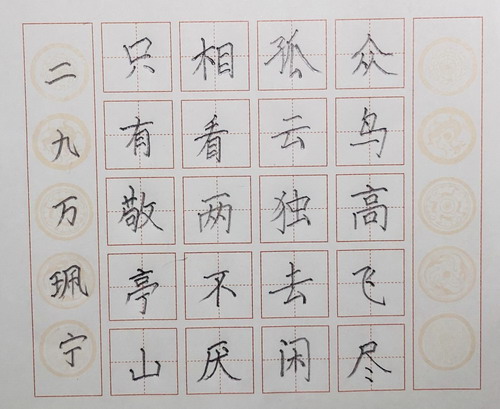 众鸟高飞尽
孤云独去闲
相看两不厌
只有敬亭山
二九万珮宁